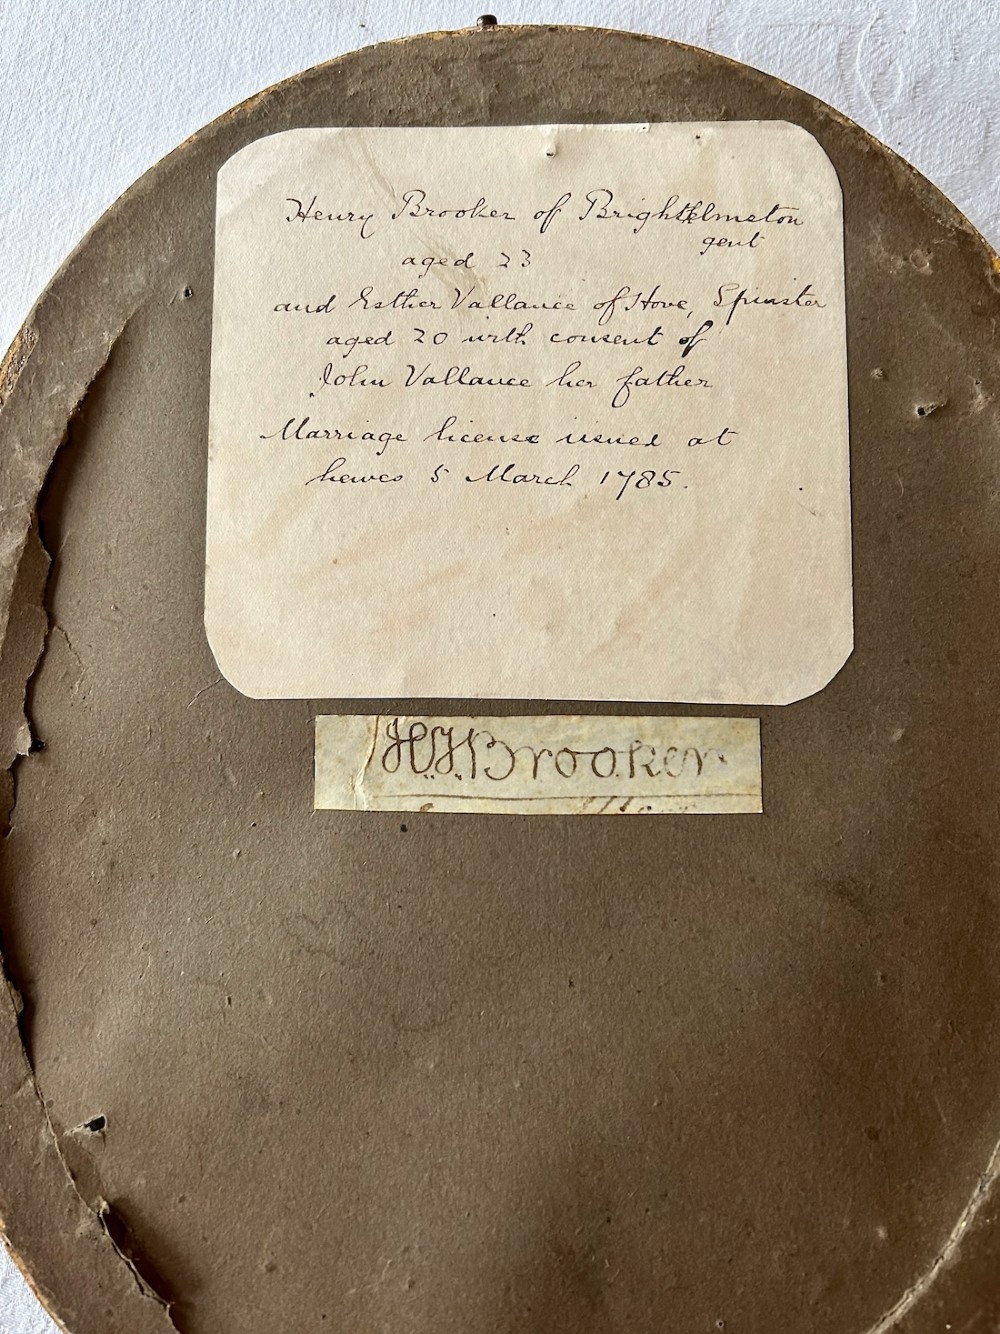 Henry Brooker of Brighthelmston
gent
aged 23
and Esther Vallance of Hove, Spinster
aged 20 with consent of
John Vallance her father
Marriage license issued at
Lewes 5 March 1785.
Brooker